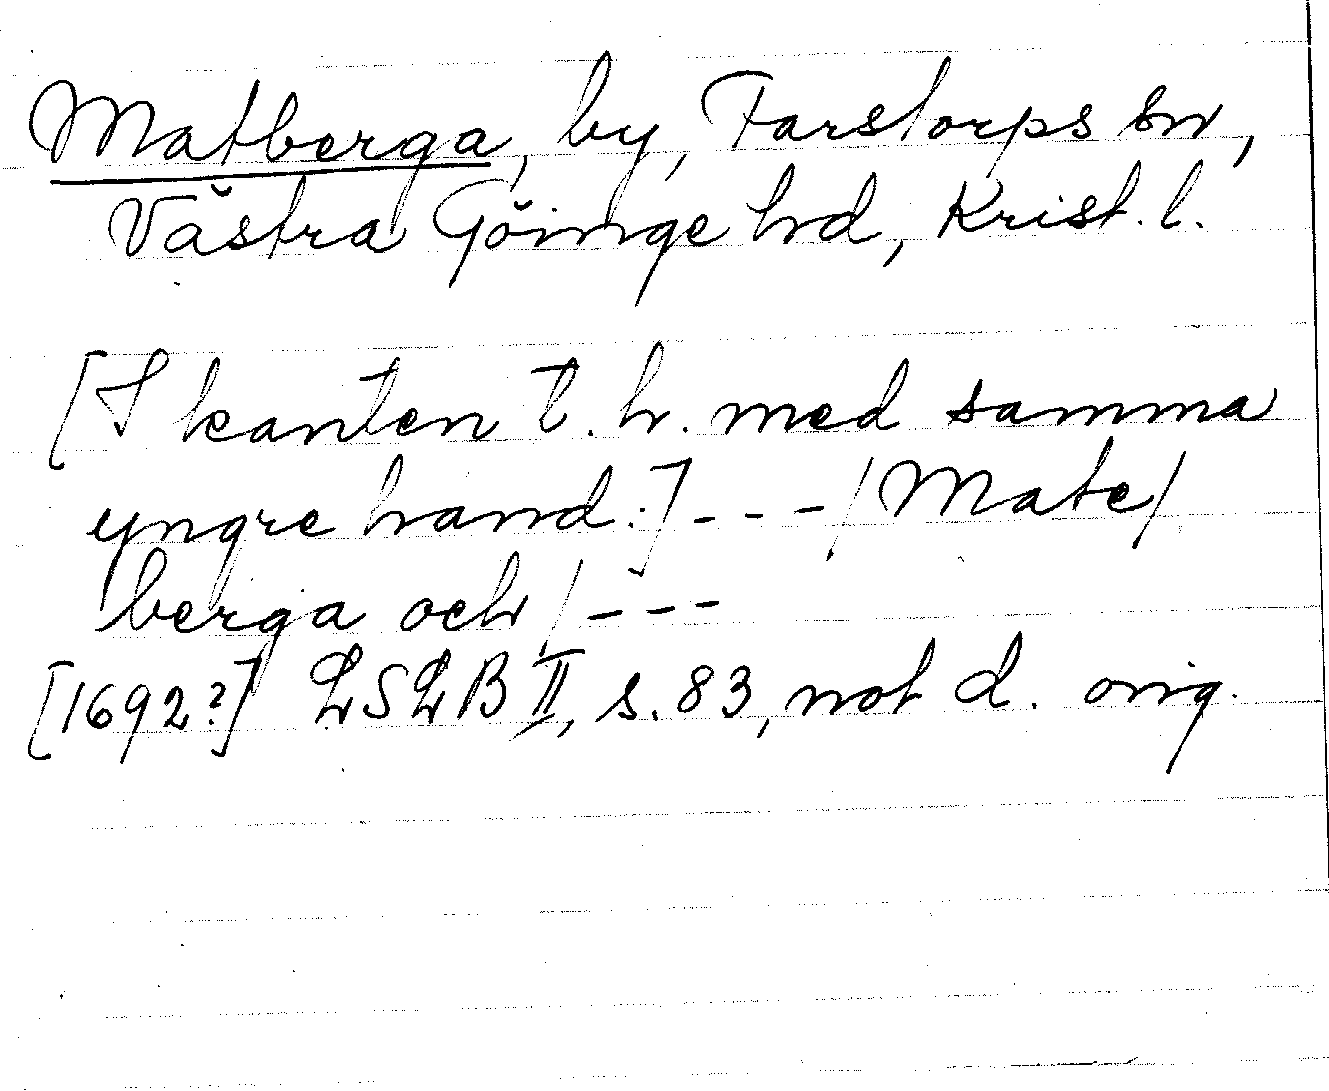 Matberga, by, Farstorps sn,
Västra Göinge hd, Krist. l.
[I kanten t. h. med samma
yngre hand:] - - - / Mate/
berga och / - - -
[1692?] LSLB II, s. 83, not d. orig.